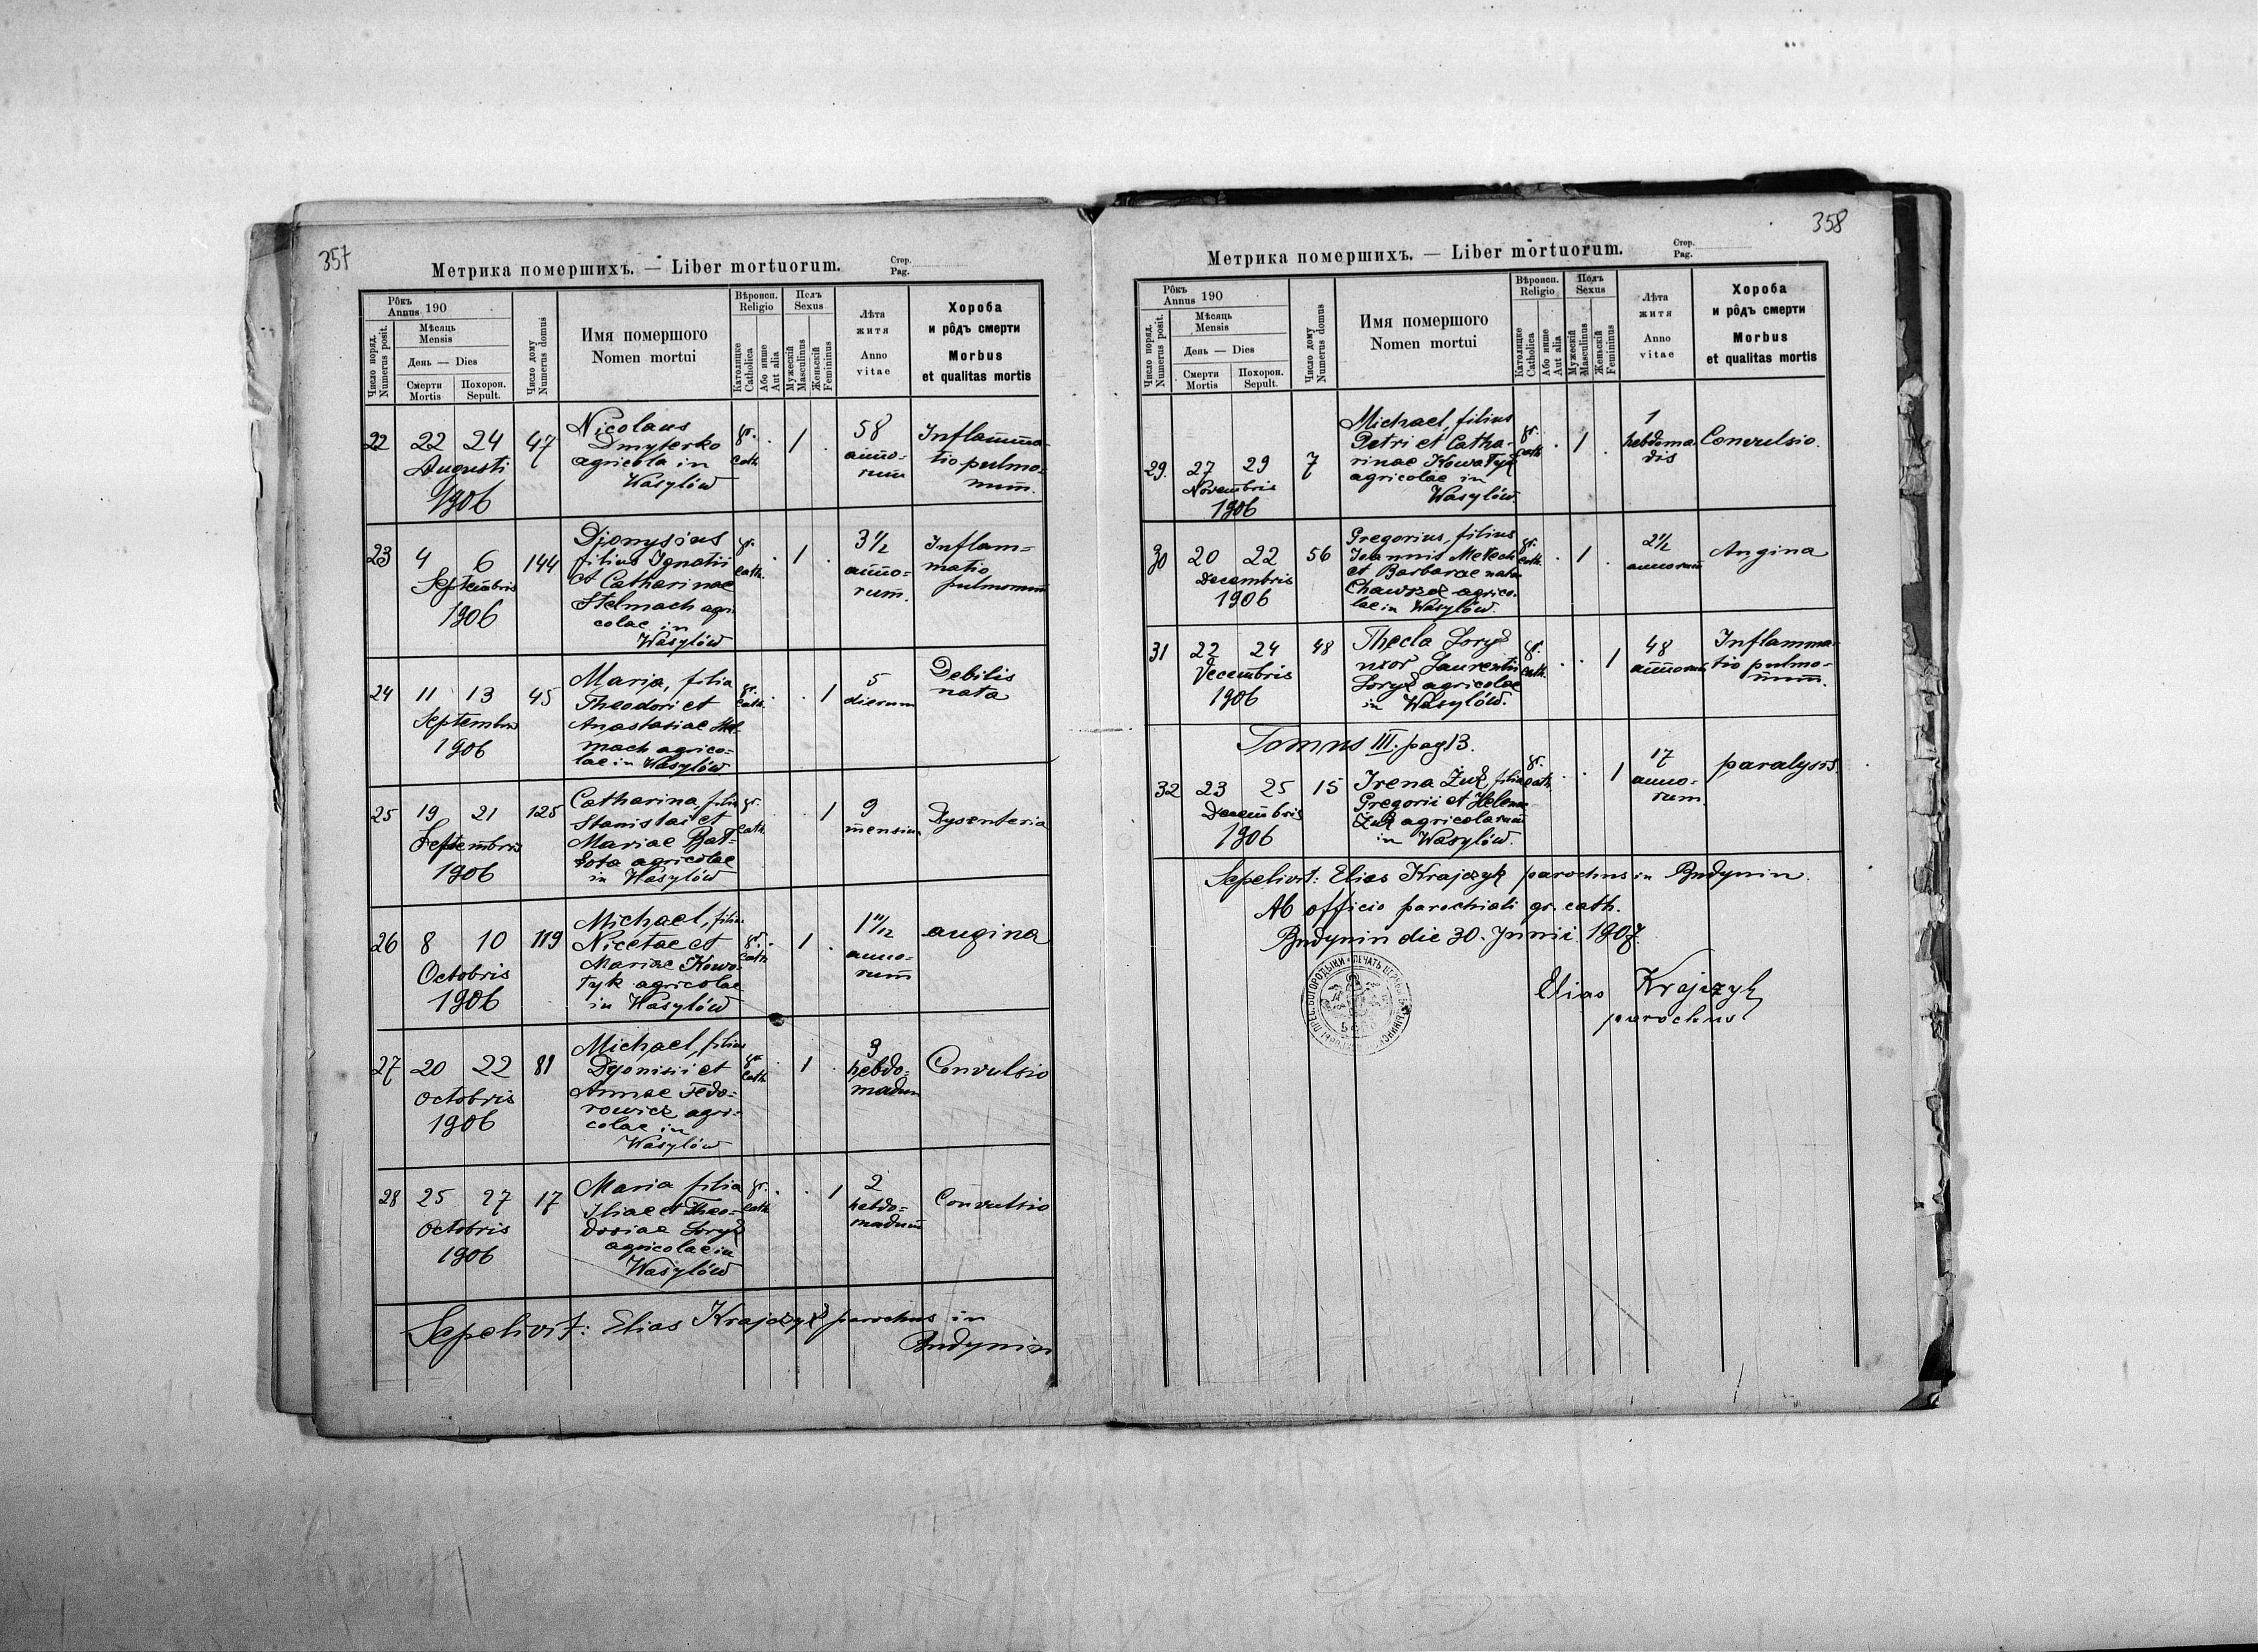 357
Метрика помершихъ. — Liber mortuorum.
Стор.
Pag.
Число поряд.
Numerus posit.
Рôкъ
Annus 190
Мѣсяць
Mensis
День — Dies
Смерти
Mortis
Похорон.
Sepult.
Число дому
Numerus domus
Имя помершого
Nomen mortui
Вѣроисп.
Religio
Католицке
Catholica
Або инше
Aut alia
Полъ
Sexus
Мужескій
Masculinus
Женьскій
Femininus
Лѣта
житя
Anno
vitae
Хороба
и рôдъ смерти
Morbus
et qualitas mortis
22 22 24 47
Augusti
1906
Nicolaus
Dmyterko
agricola in
Wasylów
gr.
cath
1
58
anno-
rum
Inflamma-
tio pulmo-
num.
23 4 6 144
Septembris
1906
Dionysius
filius Ignatii
et Catharinae
Stelmach agri-
colae in
Wasylów
gr.
cath.
1
3 1/2
anno-
rum.
Inflam-
matio
pulmonum
24 11 13 45
Septembris
1906
Maria, filia
Theodori et
Anastasiae Stel-
mach agrico-
lae in Wasylów
gr.
cath.
1
5
dierum
Debilis
nata
25 19 21 125
Septembris
1906
Catharina, filia
Stanislai et
Mariae
agricolae
in Wasylów
gr.
cath.
1
9
mensium
Dysenteria
26 8 10 119
Octobris
1906
Michael, filius
Nicetae et
Mariae Kowa-
łyk agricolae
in Wasylów
gr.
cath
1
1 11/12
anno-
rum
angina
27 20 22 81
Octobris
1906
Michael, filius
Dyonisii et
Annae Fedo-
rowicz agri-
colae in
Wasylów
gr.
cath
1
3
hebdo-
madum
Convulsio
28 25 27 17
Octobris
1906
Maria filia
Iliae et Theo-
dosiae Soryk
agricolae in
Wasylów
gr.
cath
1
2
hebdo-
madum
Convulsio
Sepelivit: Elias Krajczyk parochus in
Budynin
358
Метрика помершихъ. — Liber mortuorum.
Стор.
Pag.
Число поряд.
Numerus posit.
Рôкъ
Annus 190
Мѣсяць
Mensis
День — Dies
Смерти
Mortis
Похорон.
Sepult.
Число дому
Numerus domus
Имя помершого
Nomen mortui
Вѣроисп.
Religio
Католицке
Catholica
Або инше
Aut alia
Полъ
Sexus
Мужескій
Masculinus
Женьскій
Femininus
Лѣта
житя
Anno
vitae
Хороба
и рôдъ смерти
Morbus
et qualitas mortis
29. 27 29 7
Novembris
1906
Michael, filius
Petri et Catha-
rinae Kowałyk
agricolae in
Wasylów.
gr.
cath
1
1
hebdoma
dis
Convulsio.
30 20 22 56
Decembris
1906
Gregorius, filius
Joannis Mełech
et Barbarae natae
agrico-
lae in Wasylów.
gr.
cath.
1
2 1/2
annorum
Angina
31 22 24 48
Decembris
1906
Thecla Soryk
uxor Laurentii
Soryk agricolae
in Wasylów.
gr.
cath.
1
48
annorum
Inflamma-
tio pulmo-
num.
Tomus III. pag 13.
32 23 25 15
Decembris
1906
Irena Żuk, filia
Gregorii et Helenae
Żuk agricolarum
in Wasylów.
gr.
cath.
1
17
anno-
rum.
paralysis.
Sepelivit: Elias Krajczyk parochus in Budynin.
Ab officio parochiali gr. cath.
Budynin die 30. Junii 1907.
Elias Krajczyk
parochus